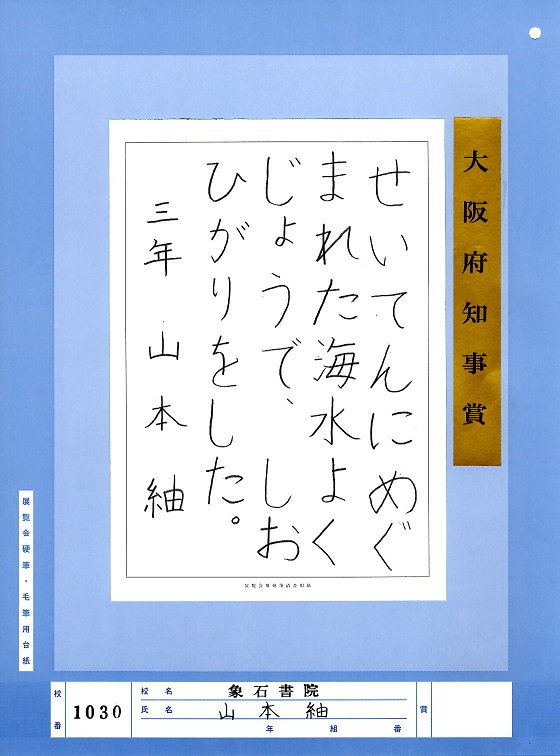 大阪府知事賞
せいてんにめぐ
まれた海水よく
じょうで、しお
ひがりをした。
三年 山本紬
展覧会硬筆・毛筆用台紙
校番 1030
校名 象石書院
氏名 山本紬
年 組 番
賞